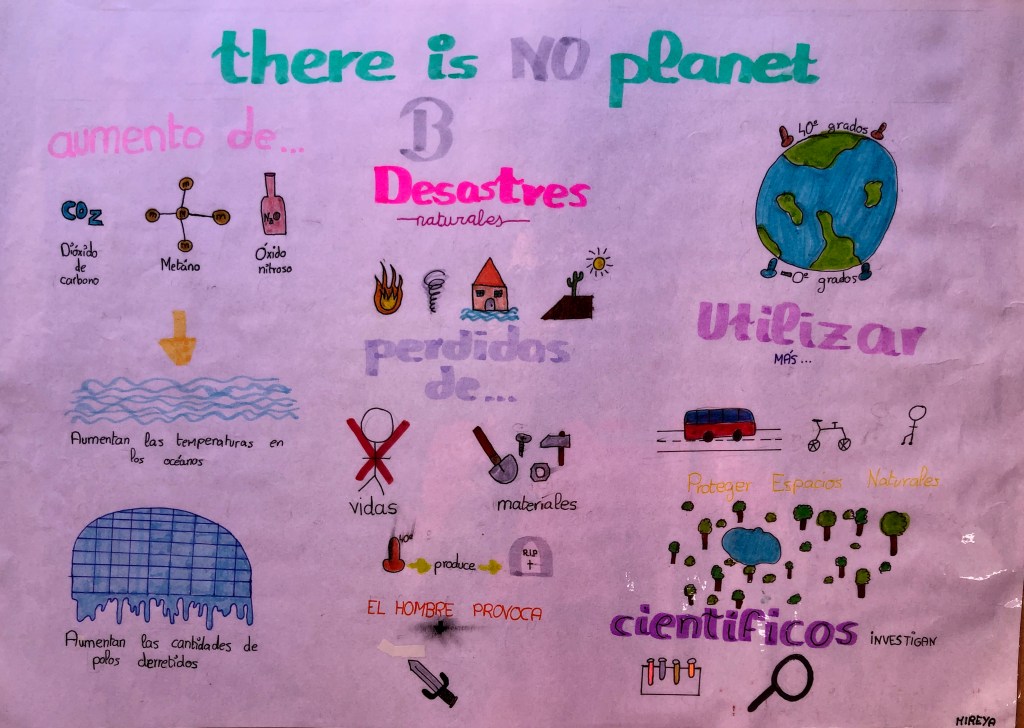 there is NO planet
B
aumento de...
CO2
N2O
Dióxido
de
carbono
Metáno
Óxido
nitroso
Aumentan las temperaturas en
los océanos
Aumentan las cantidades de
polos derretidos
Desastres
naturales
perdidas
de...
vidas
materiales
40º
produce
R.I.P
EL HOMBRE PROVOCA
40º grados
-0º grados
Utilizar
MÁS...
Proteger Espacios Naturales
científicos INVESTIGAN
MIREYA